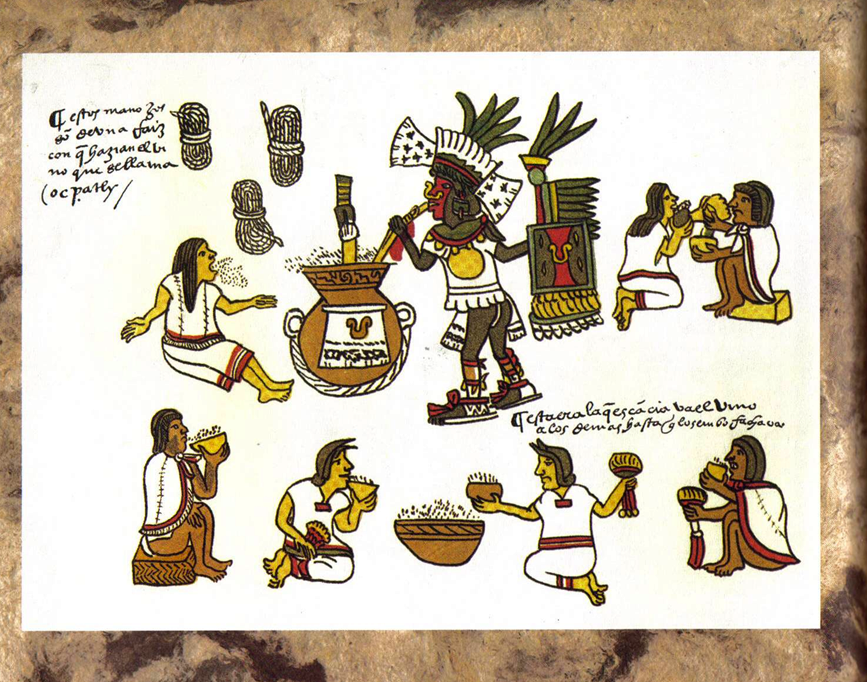 ¶ estos manojos
sō de vna raiz
con q̄ hazian el vi
no que se llama
(ocpatly /
¶ esta era la q̄ escācia va el vino
a los demas hasta q̄ los enbo